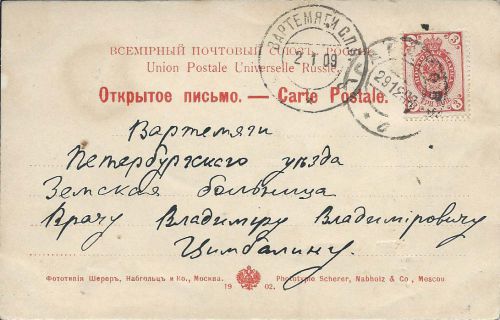 ВСЕМІРНЫЙ ПОЧТОВЫЙ СОЮЗЪ. РОССІЯ
Union Postale Universelle Russie.
ВАРТЕМЯГИ С.П.Б.
2 1 09
29 12
Открытое письмо. — Carte Postale.
Вартемяги
Петербургскаго уѣзда
Земская больница
Врачу Владиміру Владиміровичу
Цимбалину.
Фототипія Шереръ, Набгольцъ и Ко., Москва.
19 02.
Phototypie Scherer, Nabholz & Co., Moscou